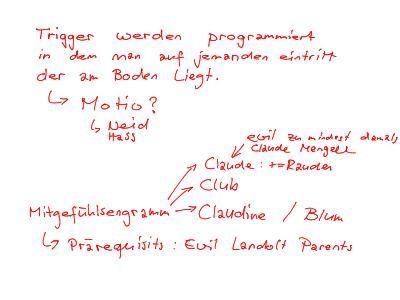 Trigger werden programmiert
in dem man auf jemanden eintritt
der am Boden Liegt.
↳ Motiv?
↳ Neid
Hass
evil zu mindest damals
Claude Mengele
Claude : += Rauden
Club
Mitgefühlsengramm → Claudine / Blum
↳ Prärequisits : Evil Landolt Parents